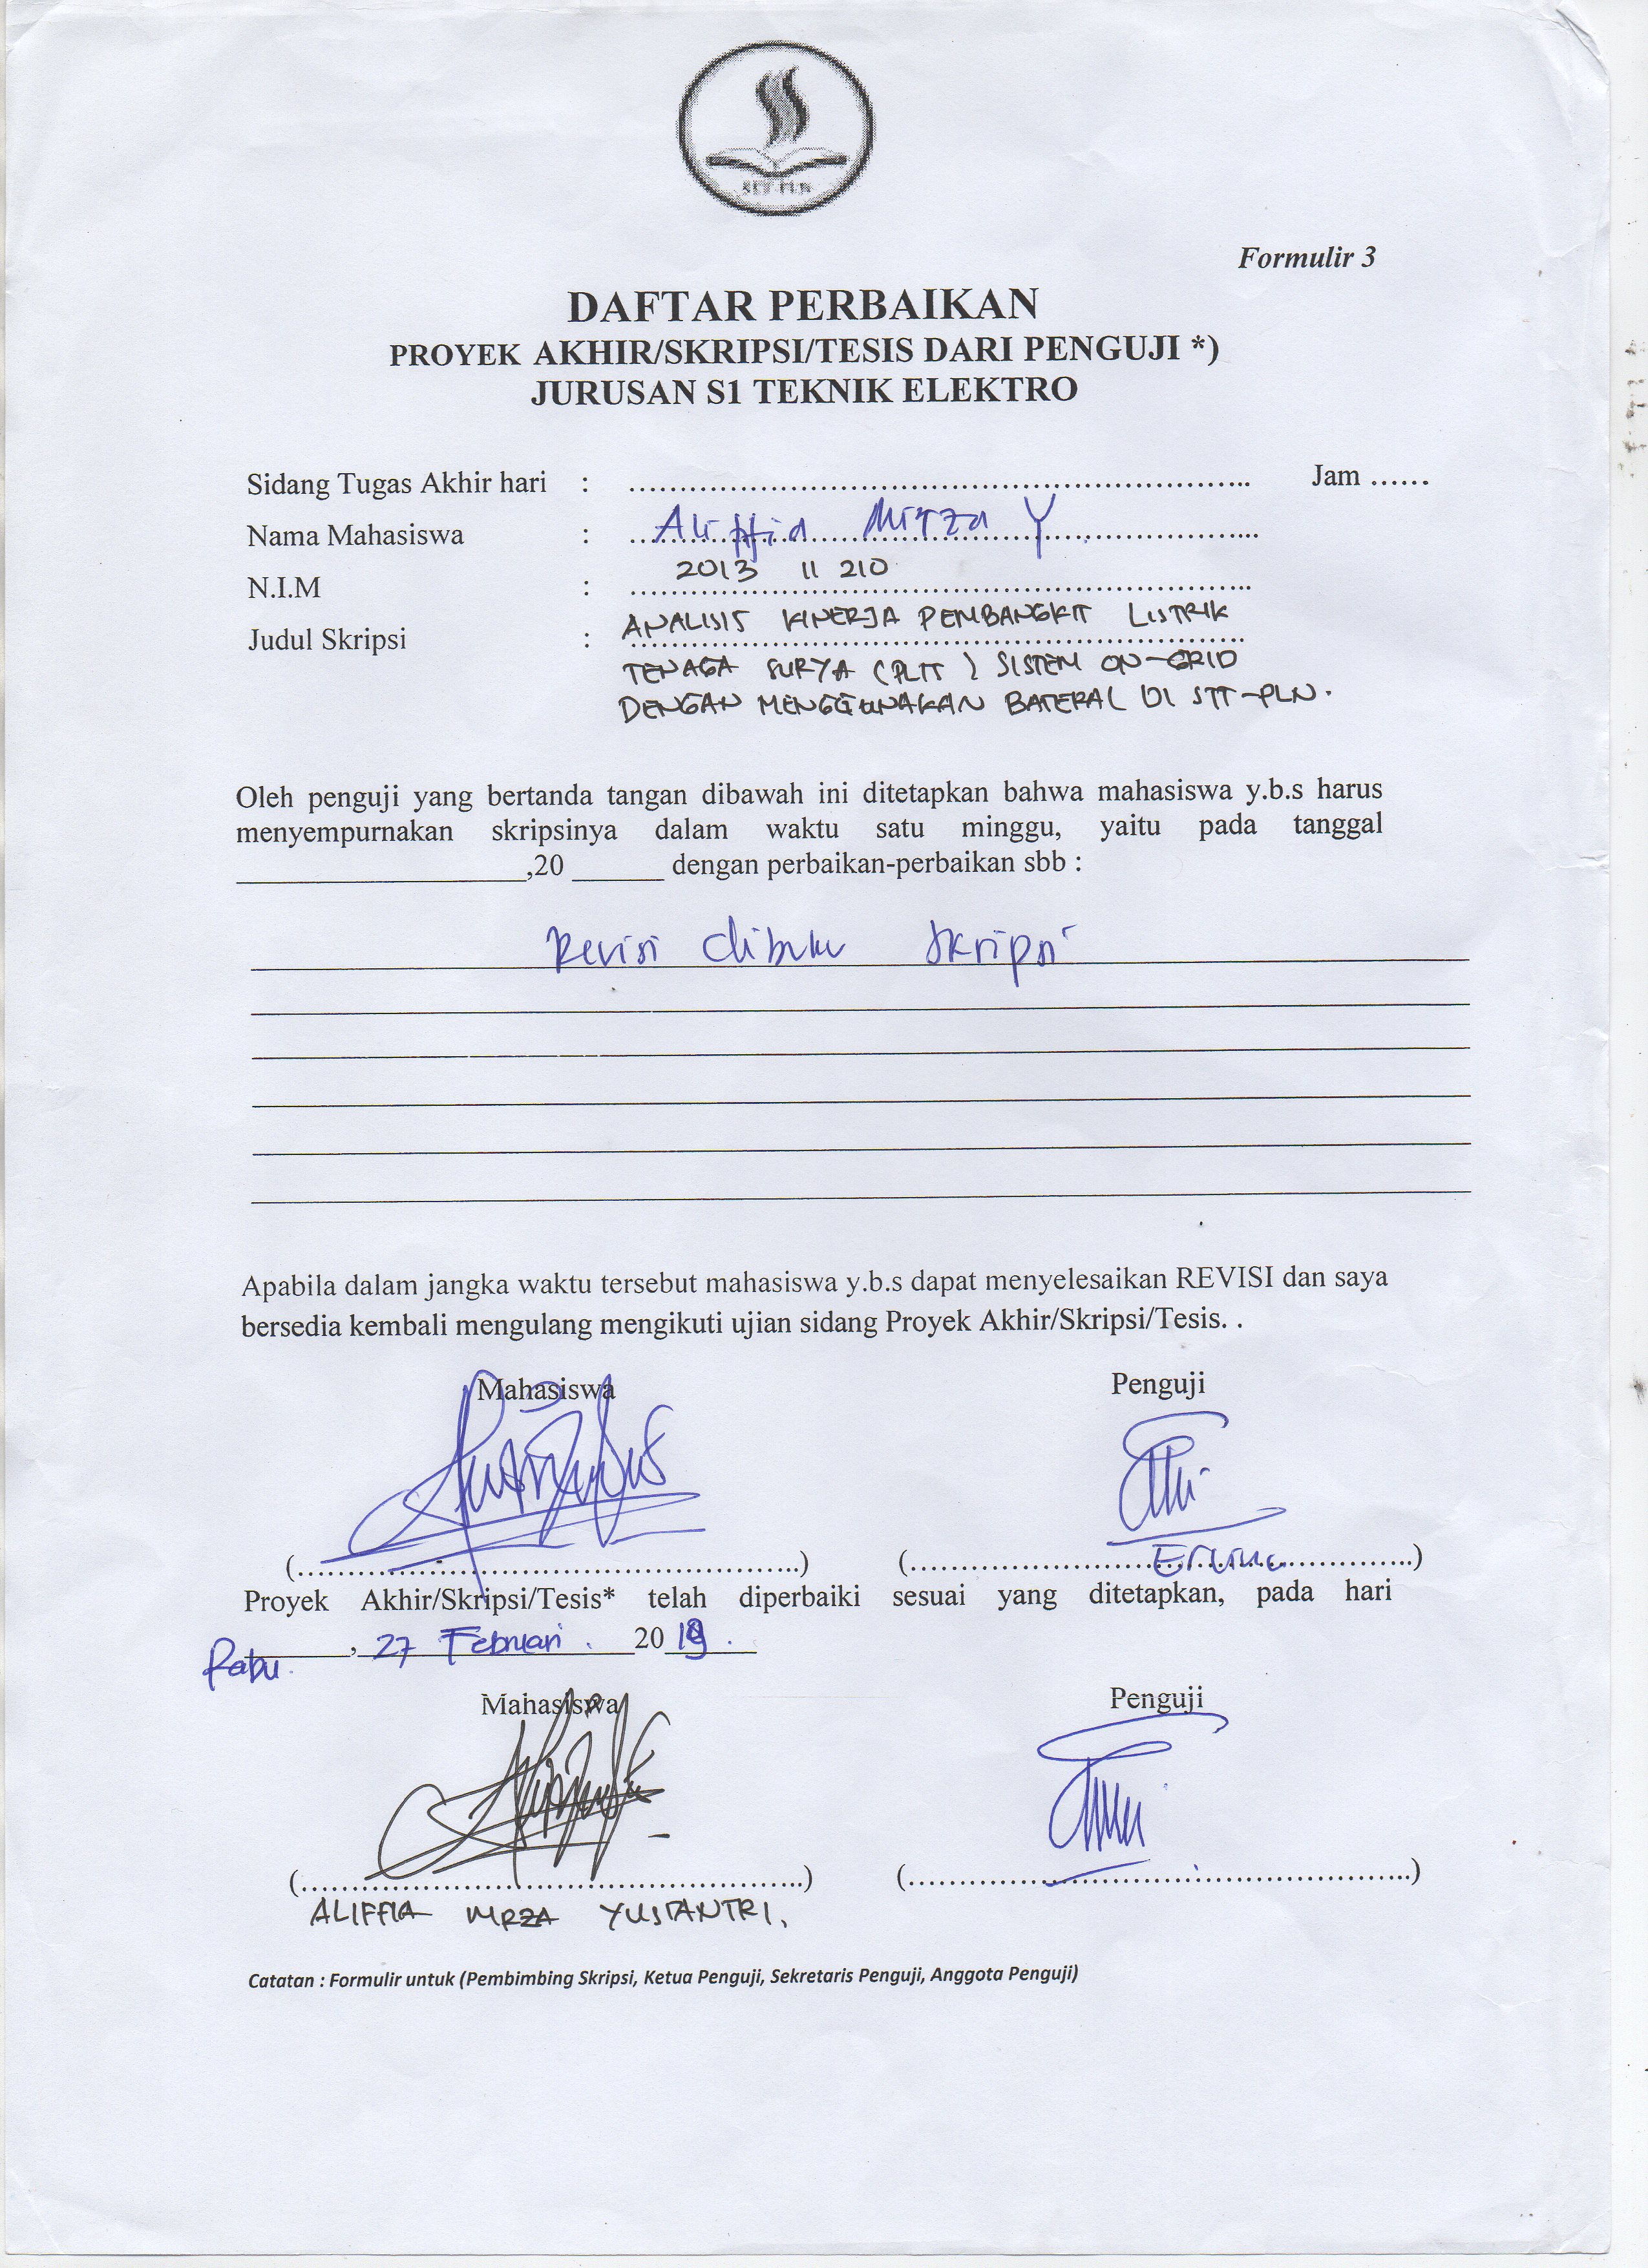 STT PLN
Formulir 3
DAFTAR PERBAIKAN
PROYEK AKHIR/SKRIPSI/TESIS DARI PENGUJI *)
JURUSAN S1 TEKNIK ELEKTRO
Sidang Tugas Akhir hari : ........................................ Jam ......
Nama Mahasiswa : Aliffia Mirza Y
N.I.M : 2013 11 210
Judul Skripsi : ANALISIS KINERJA PEMBANGKIT LISTRIK
TENAGA SURYA (PLTS) SISTEM ON-GRID
DENGAN MENGGUNAKAN BATERAI DI STT-PLN.
Oleh penguji yang bertanda tangan dibawah ini ditetapkan bahwa mahasiswa y.b.s harus
menyempurnakan skripsinya dalam waktu satu minggu, yaitu pada tanggal
____________________,20 ______ dengan perbaikan-perbaikan sbb :
Revisi dibuku skripsi
Apabila dalam jangka waktu tersebut mahasiswa y.b.s dapat menyelesaikan REVISI dan saya
bersedia kembali mengulang mengikuti ujian sidang Proyek Akhir/Skripsi/Tesis. .
Mahasiswa Penguji
(........................................) (........................................)
Proyek Akhir/Skripsi/Tesis* telah diperbaiki sesuai yang ditetapkan, pada hari
Rabu, 27 Februari. 2019.
Mahasiswa Penguji
(........................................) (........................................)
ALIFFIA MIRZA YUSTANTRI.
Catatan : Formulir untuk (Pembimbing Skripsi, Ketua Penguji, Sekretaris Penguji, Anggota Penguji)